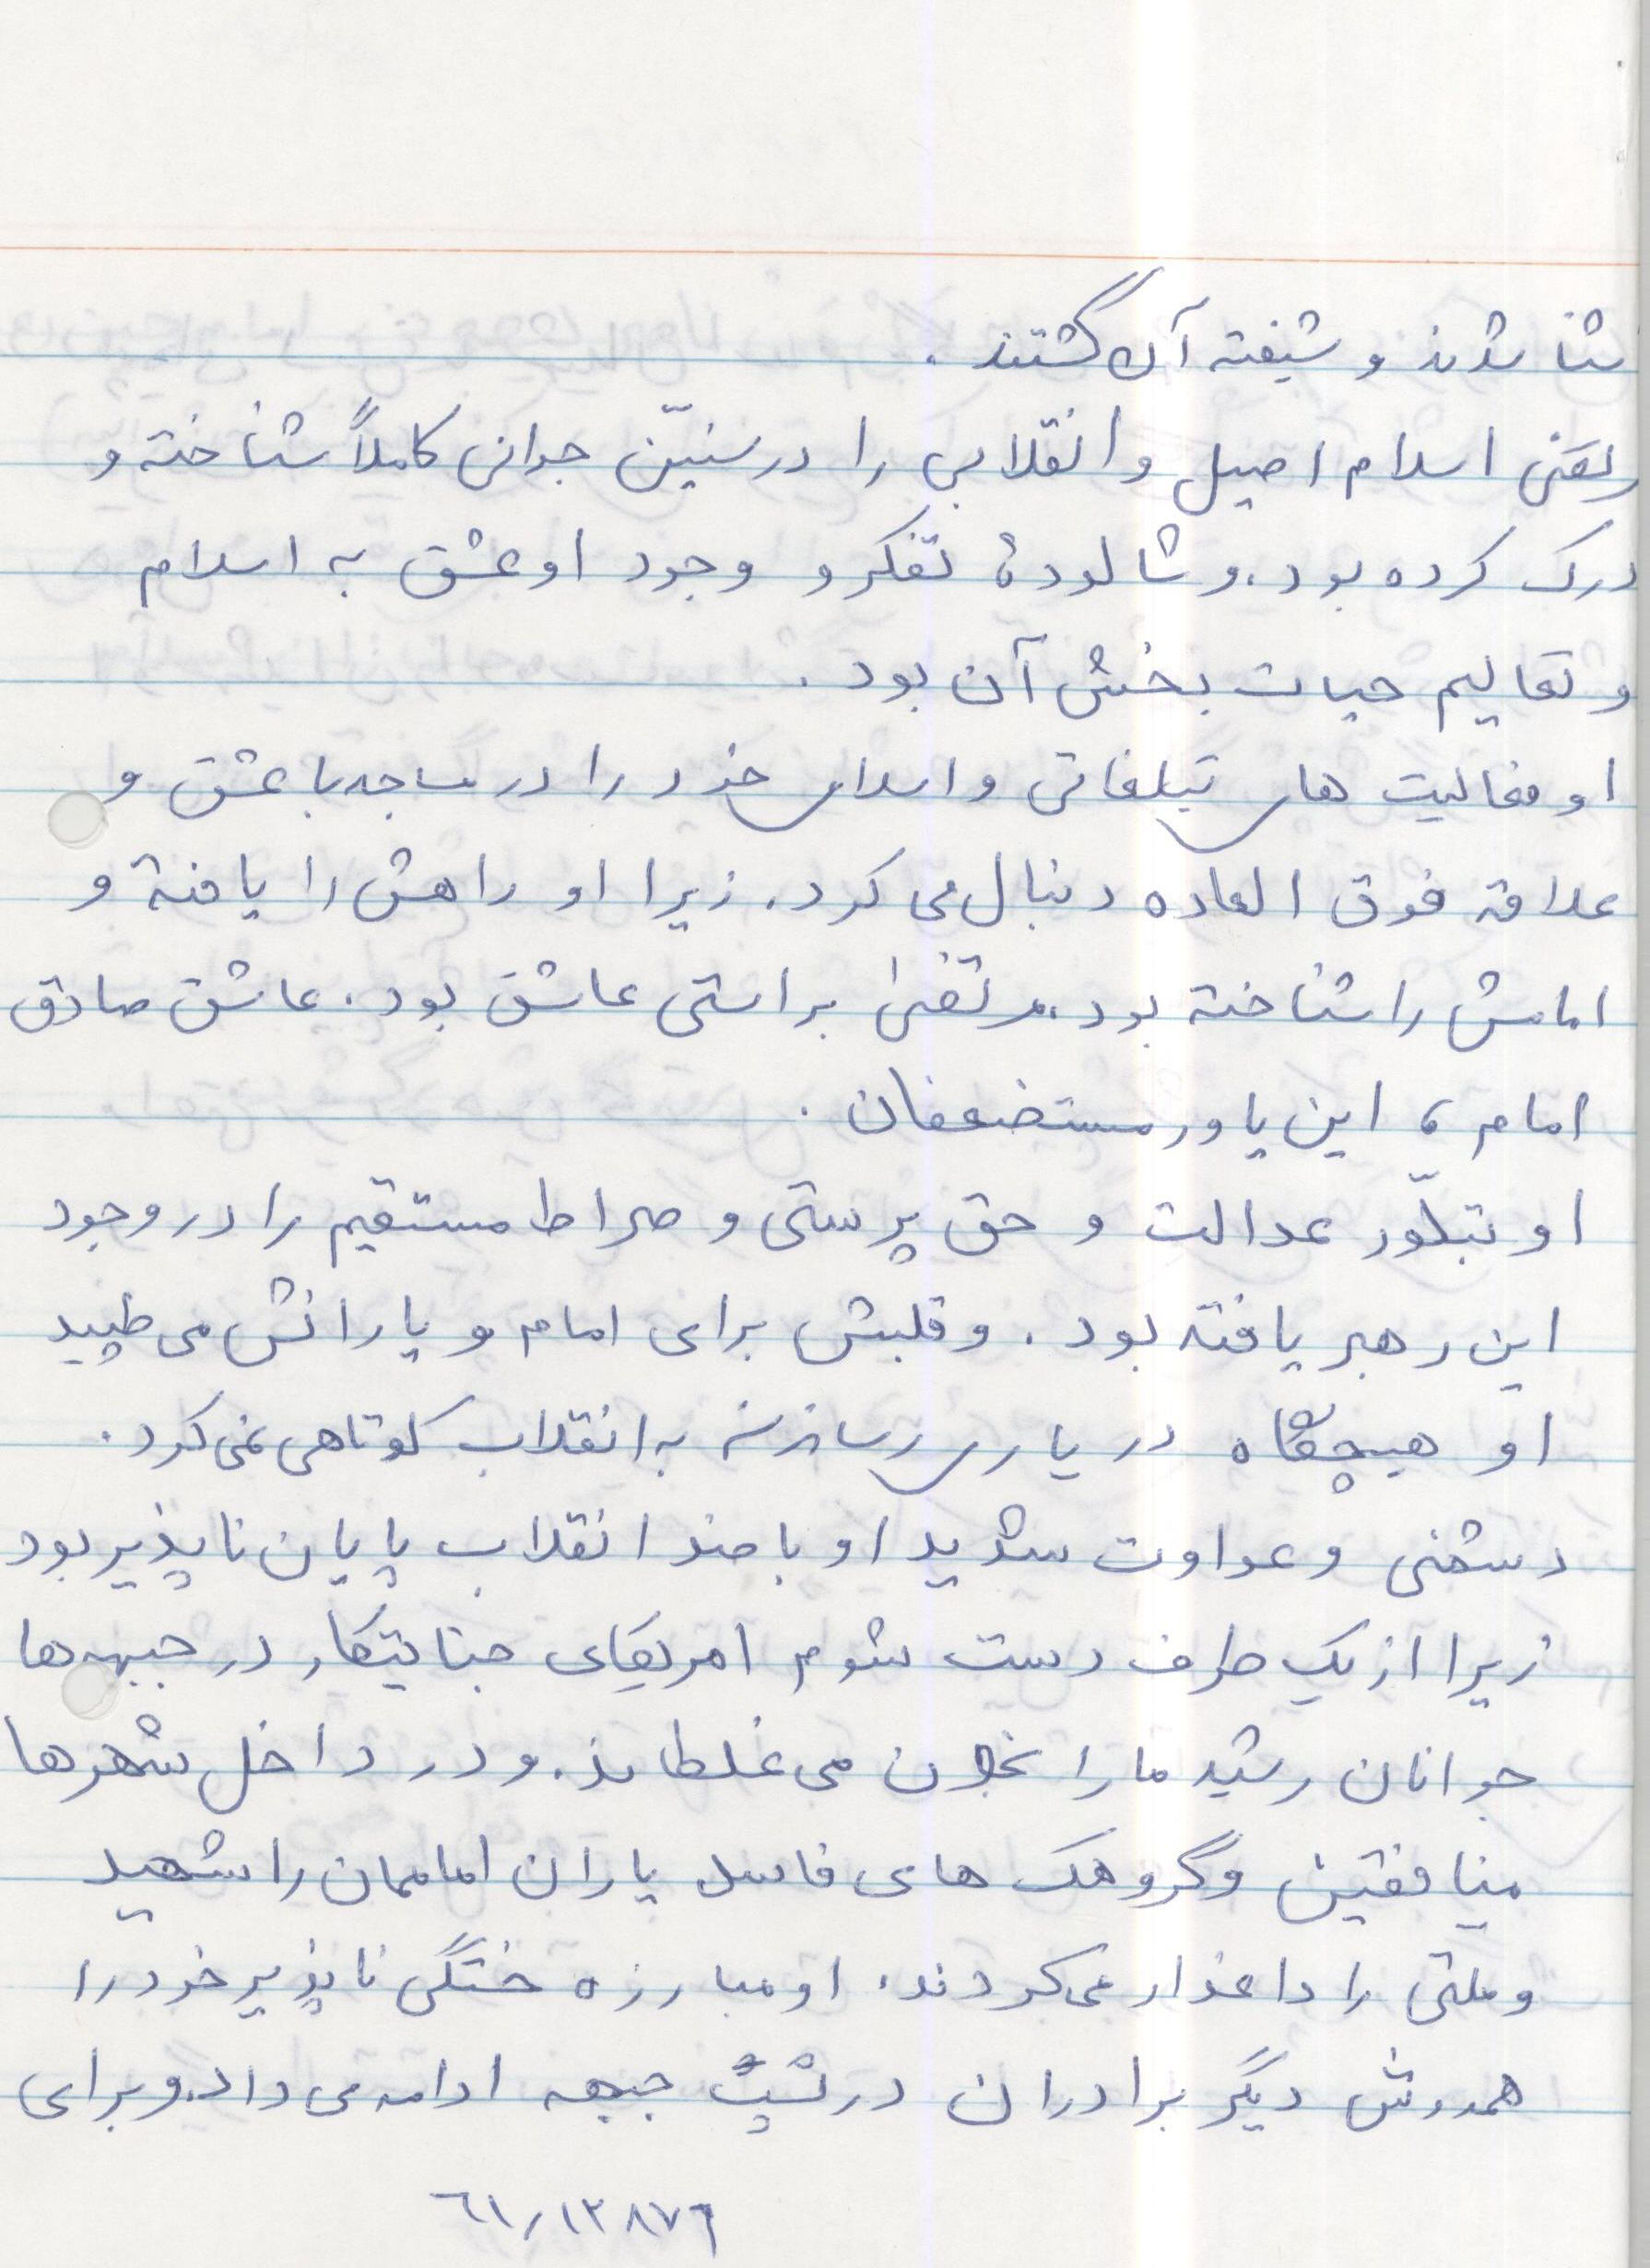 شنا شدند و شیفته آن گشتند .
یعنی اسلام اصیل و انقلابی را در سنیّن جوانی کاملاً شناخته و
درک کرده بود . و شالودهٔ تفکر و وجود او عشق به اسلام
و تعالیم حیات بخش آن بود .
او فعالیت های تبلیغاتی و اسلامی خود را در مساجد با عشق و
علاقه فوق العاده دنبال می کرد . زیرا او راهش را یافته و
امامش را شناخته بود . مرتضی براستی عاشق بود . عاشق صادق
امام ، این یاور مستضعفان .
او تبلّور عدالت و حق پرستی و صراط مستقیم را در وجود
این رهبر یافته بود . و قلبش برای امام و یارانش می طپید
او هیچگاه در یاری رساندن به انقلاب کوتاهی نمی کرد .
دشمنی و عداوت شدید او با ضد انقلاب پایان ناپذیر بود
زیرا از یک طرف دست شوم امریکای جنایتکار در جبهه ها
جوانان رشید ما را بخون می غلطاند . و در داخل شهرها
منافقین و گروهک های فاسد یاران اماممان را شهید
و ملتی را داغدار می کردند . او مبارزه خستگی ناپذیر خود را
همدوش دیگر برادران در پشت جبهه ادامه می داد . و برای
٦١/١٣٨٧٦